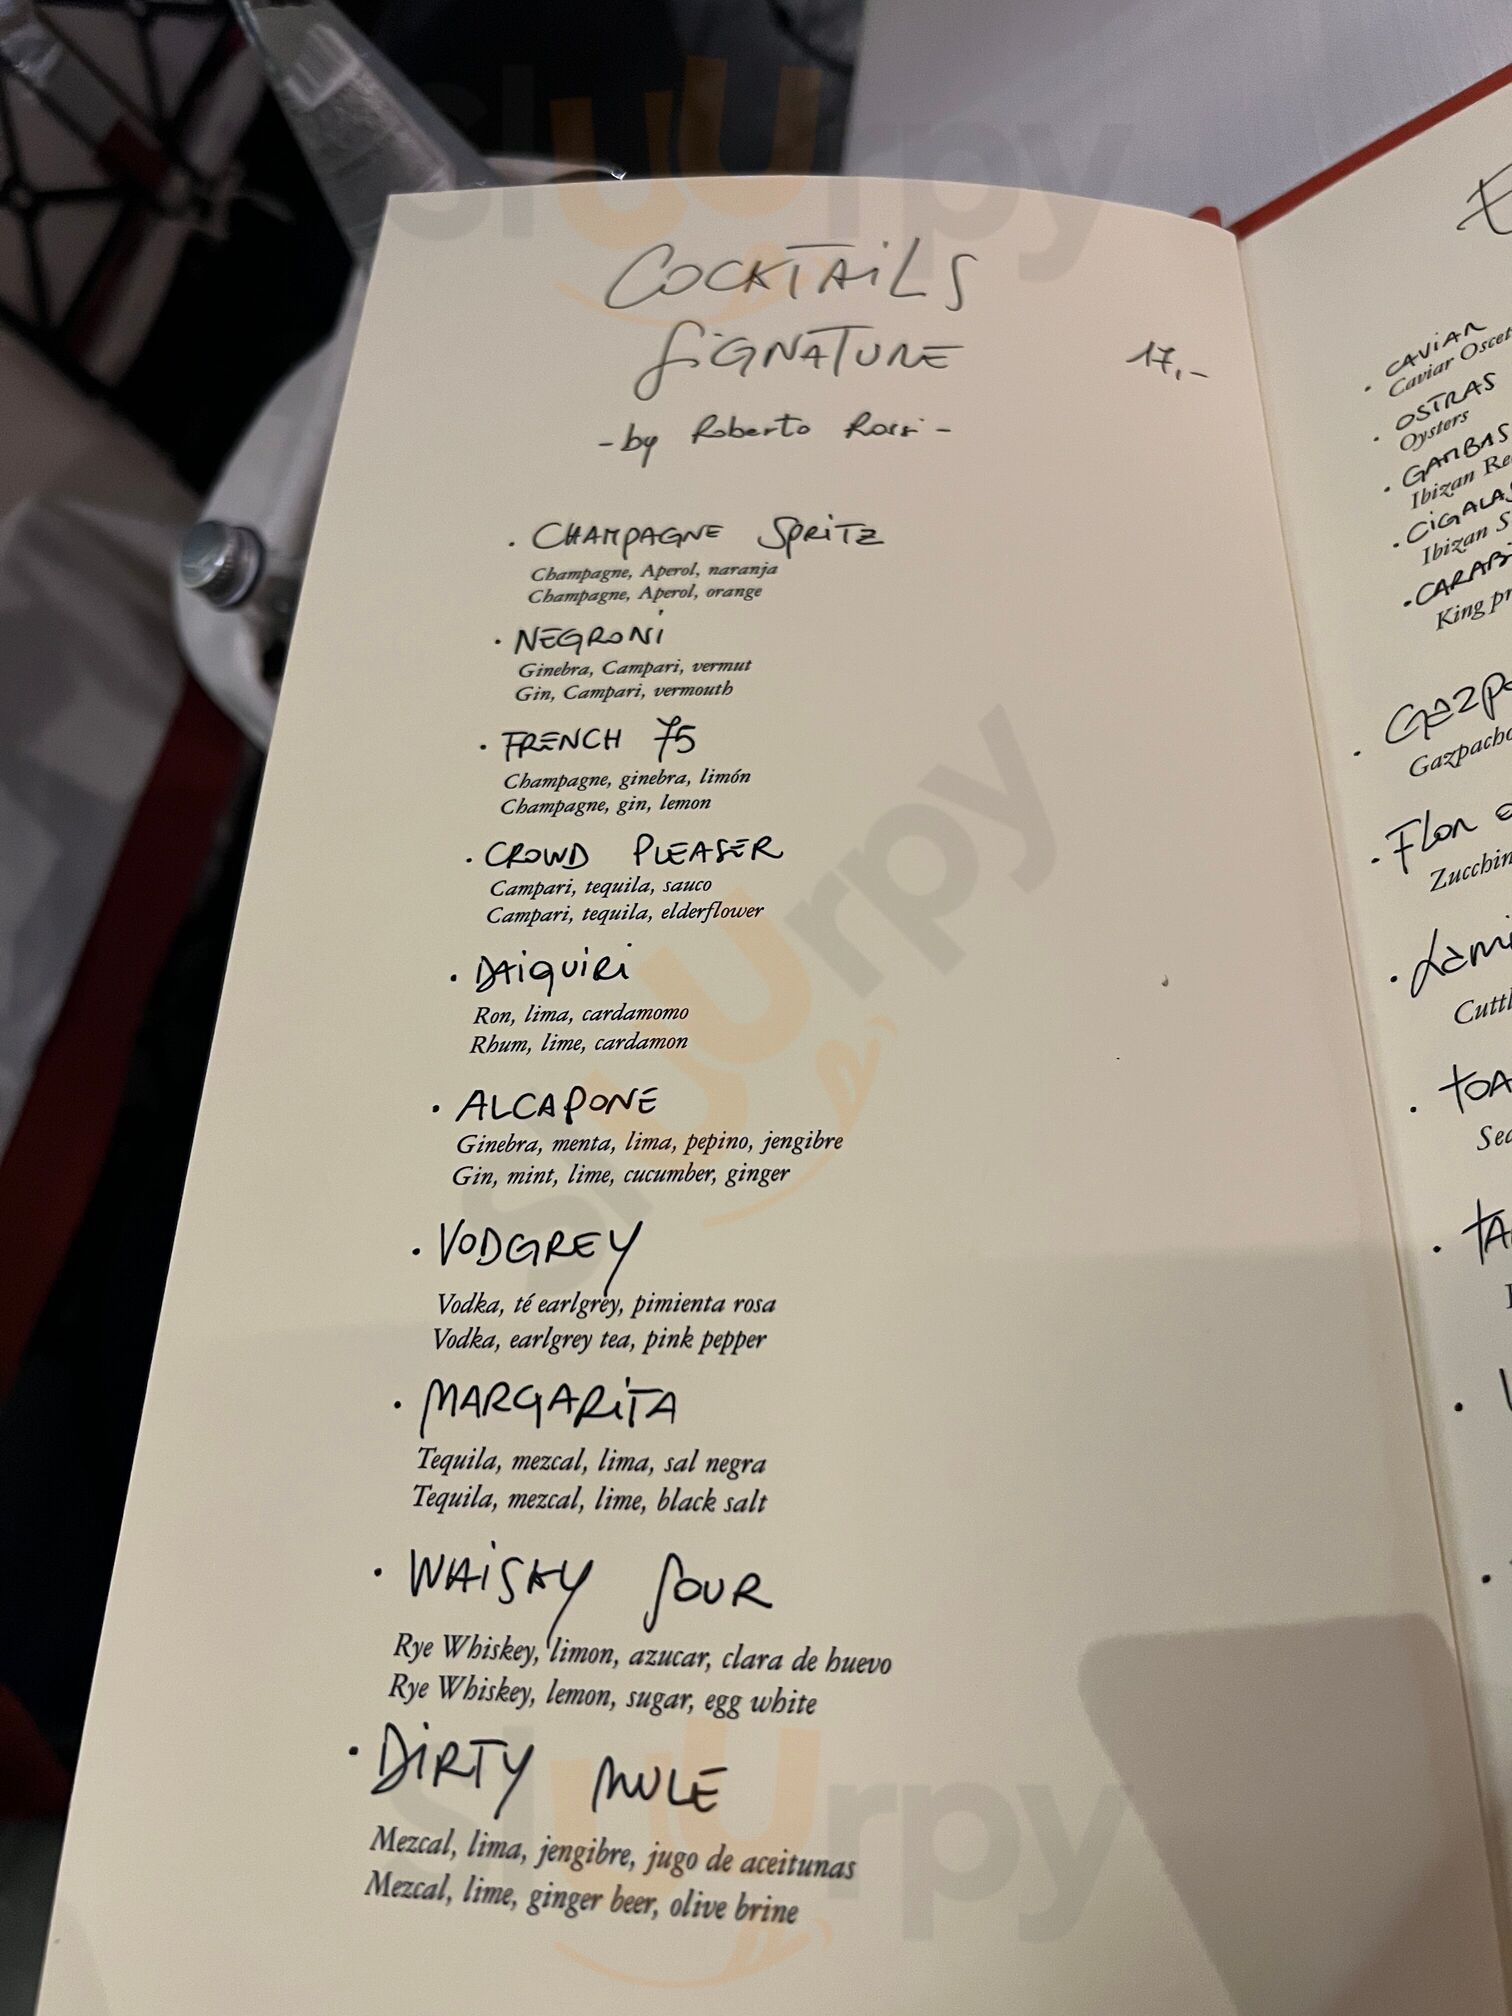 COCKTAILS
SIGNATURE 17,-
- by Roberto Rossi -
· CHAMPAGNE SPRITZ
Champagne, Aperol, naranja
Champagne, Aperol, orange
· NEGRONI
Ginebra, Campari, vermut
Gin, Campari, vermouth
· FRENCH 75
Champagne, ginebra, limón
Champagne, gin, lemon
· CROWD PLEASER
Campari, tequila, sauco
Campari, tequila, elderflower
· DAIQUIRI
Ron, lima, cardamomo
Rhum, lime, cardamon
· ALCAPONE
Ginebra, menta, lima, pepino, jengibre
Gin, mint, lime, cucumber, ginger
· VODGREY
Vodka, té earlgrey, pimienta rosa
Vodka, earlgrey tea, pink pepper
· MARGARITA
Tequila, mezcal, lima, sal negra
Tequila, mezcal, lime, black salt
· WHISKY SOUR
Rye Whiskey, limon, azucar, clara de huevo
Rye Whiskey, lemon, sugar, egg white
· DIRTY MULE
Mezcal, lima, jengibre, jugo de aceitunas
Mezcal, lime, ginger beer, olive brine
· CAVIAR
Caviar
· OSTRAS
Oysters
· GAMBAS
Ibizan
Ibizan
King
sluurpy
sluurpy
sluurpy